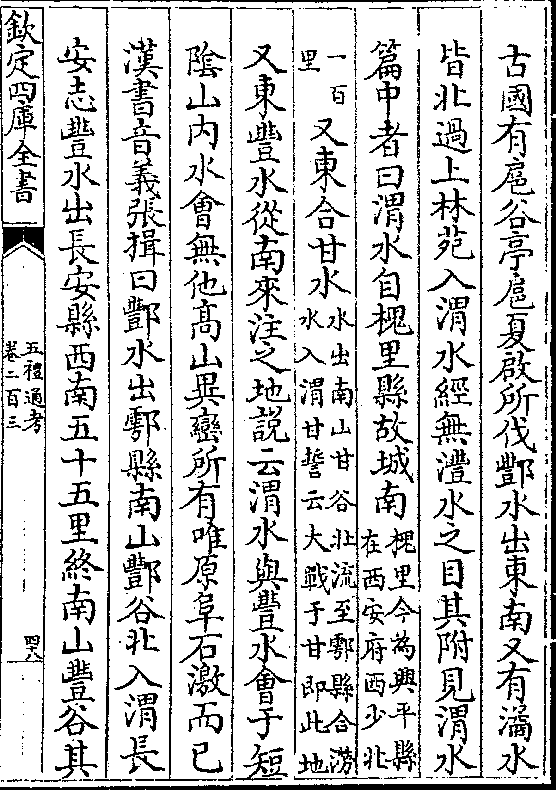 古國有扈谷亭扈夏啟所伐酆水出東南又有潏水
皆北過上林苑入渭水經無澧水之目其附見渭水
篇中者曰渭水自槐里縣故城南槐里今為興平縣在西安府西少北
一百里又東合甘水水出南山甘谷北流至鄠縣合澇水入渭甘誓云大戰于甘即此地
又東豐水從南來注之地說云渭水與豐水會于短
陰山内水會無他髙山異巒所有唯原阜石激而已
漢書音義張揖曰酆水出鄠縣南山酆谷北入渭長
安志豐水出長安縣西南五十五里終南山豐谷其
欽定四庫全書
五禮通考
卷二百三
四八